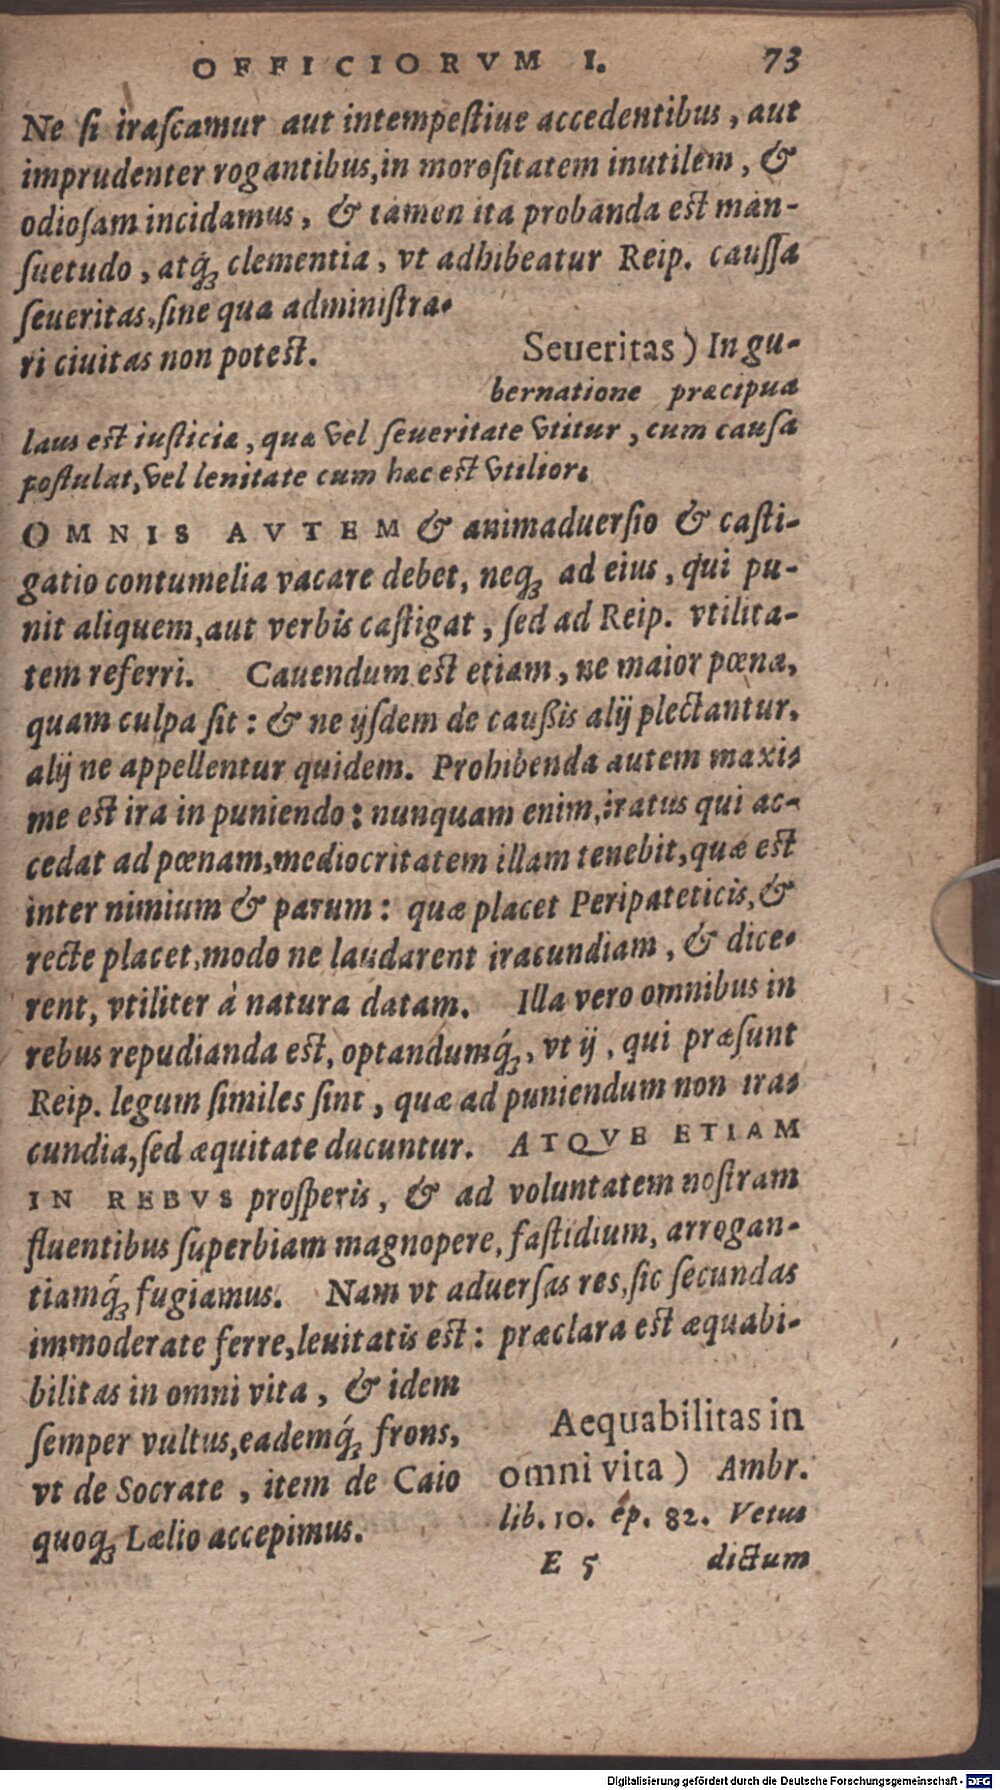 OFFICIORVM I. 73
Ne si irascamur aut intempestiue accedentibus, aut
imprudenter rogantibus, in morositatem inutilem, &
odiosam incidamus, & tamen ita probanda est man-
suetudo, atq́; clementia, vt adhibeatur Reip. caussa
seueritas, sine qua administra-
ri ciuitas non potest.
Seueritas) In gu-
bernatione præcipua
laus est iusticiæ, quæ vel seueritate vtitur, cum causa
postulat, vel lenitate cum hæc est vtilior.
OMNIS AVTEM & animaduersio & casti-
gatio contumelia vacare debet, neq; ad eius, qui pu-
nit aliquem, aut verbis castigat, sed ad Reip. vtilita-
tem referri. Cauendum est etiam, ne maior pœna,
quam culpa sit: & ne ijsdem de caußis alij plectantur,
alij ne appellentur quidem. Prohibenda autem maxi-
me est ira in puniendo: nunquam enim, iratus qui ac-
cedat ad pœnam, mediocritatem illam tenebit, quæ est
inter nimium & parum: quæ placet Peripateticis, &
recte placet, modo ne laudarent iracundiam, & dice-
rent, vtiliter à natura datam. Illa vero omnibus in
rebus repudianda est, optandumq́;, vt ij, qui præsunt
Reip. legum similes sint, quæ ad puniendum non ira-
cundia, sed æquitate ducuntur. ATQVE ETIAM
IN REBVS prosperis, & ad voluntatem nostram
fluentibus superbiam magnopere, fastidium, arrogan-
tiamq́; fugiamus. Nam vt aduersas res, sic secundas
immoderate ferre, leuitatis est: præclara est æquabi-
bilitas in omni vita, & idem
semper vultus, eademq́; frons,
vt de Socrate, item de Caio
quoq; Lælio accepimus.
Aequabilitas in
omni vita) Ambr.
lib. 10. ep. 82. Vetus
E 5 dictum
Digitalisierung gefördert durch die Deutsche Forschungsgemeinschaft - DFG